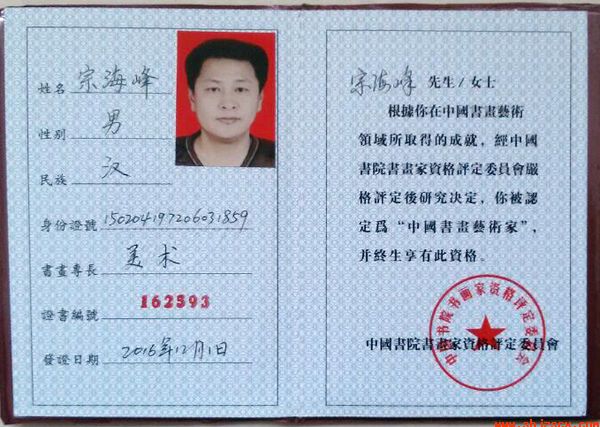 姓名 宗海峰
性别 男
民族 汉
身份證號 150204197206031859
書畫專長 美术
證書編號 162393
發證日期 2016年12月1日
宗海峰 先生/女士
根據你在中國書畫藝術
領域所取得的成就，經中國
書院書畫家資格評定委員會嚴
格評定後研究决定，你被認
定爲“中國書畫藝術家”，
并終生享有此資格。
中国书院书画家资格评定委员会
中國書院書畫家資格評定委員會